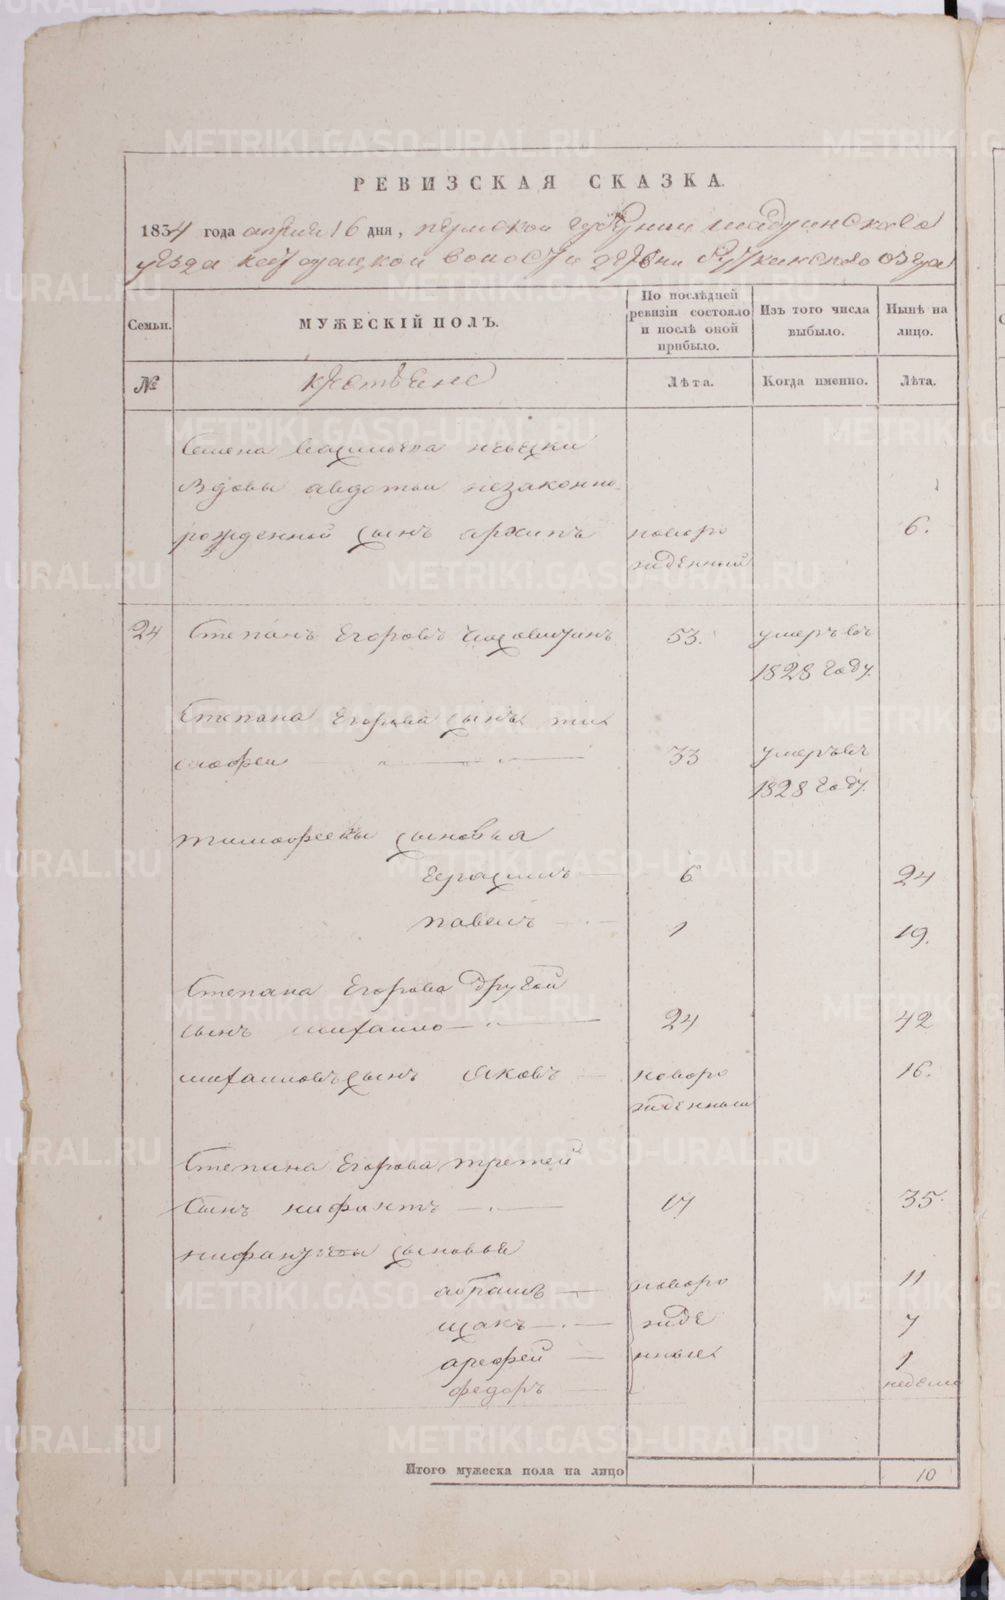 METRIKI.GASO-URAL.RU
РЕВИЗСКАЯ СКАЗКА.
1834 года апреля 16 дня, пермской губернии шадринскаго
уезда волости деревни озера
Семьи.
МУЖЕСКІЙ ПОЛЪ.
По послѣдней ревизіи состояло и послѣ оной прибыло.
Изъ того числа выбыло.
Нынѣ на лицо.
№
крестьяне
Лѣта.
Когда именно.
Лѣта.
Семена Васильева
вдовы авдотьи незаконно
рожденной сынъ архипъ новоро 6.
жденный
24 Степанъ Егоровъ 53. умеръ въ
1828 году.
Степана Егорова сынъ тим
офеи 33 умеръ въ
1828 году.
тимофеевы сыновья
Герасимъ 6 24
павелъ 1 19.
Степана Егорова другой
сынъ михаило 24 42
михаиловъ сынъ яковъ новоро 16.
жденныи
Степана Егорова третей
Сынъ нифантъ 17 35.
нифантьевы сыновья
абрамъ новоро 11
исакъ жде 7
арефей нные 1
федоръ неделя
Итого мужеска пола на лицо 10